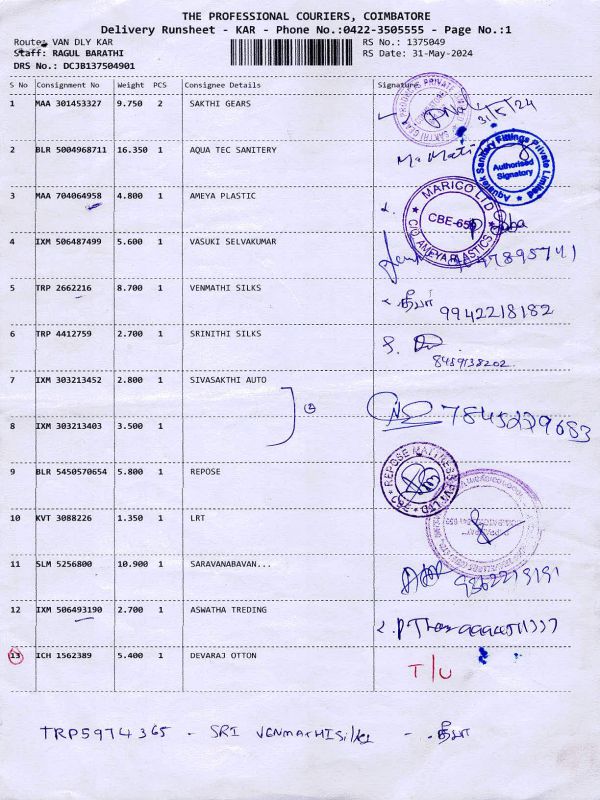 THE PROFESSIONAL COURIERS, COIMBATORE
Delivery Runsheet - KAR - Phone No.:0422-3505555 - Page No.:1
Route: VAN DLY KAR
RS No.: 1375049
Staff: RAGUL BARATHI
RS Date: 31-May-2024
DRS No.: DCJB137504901
S No Consignment No Weight PCS Consignee Details Signature
1 MAA 301453327 9.750 2 SAKTHI GEARS
31/5/24
2 BLR 5004968711 16.350 1 AQUA TEC SANITERY
Aquatek Sanitary Fittings Private Limited
Authorised
Signatory
3 MAA 704064958 4.800 1 AMEYA PLASTIC
MARICO LTD
CBE-659
C/O AMEYA PLASTICS
4 IXM 506487499 5.600 1 VASUKI SELVAKUMAR
5 TRP 2662216 8.700 1 VENMATHI SILKS
9942218182
6 TRP 4412759 2.700 1 SRINITHI SILKS
8489138202
7 IXM 303213452 2.800 1 SIVASAKTHI AUTO
7845229683
8 IXM 303213403 3.500 1
9 BLR 5450570654 5.800 1 REPOSE
REPOSE MATTRESS PVT LTD
10 KVT 3088226 1.350 1 LRT
11 SLM 5256800 10.900 1 SARAVANABAVAN...
12 IXM 506493190 2.700 1 ASWATHA TREDING
13 ICH 1562389 5.400 1 DEVARAJ OTTON
T/U
TRP5974365 - SRI VENMATHI Silks -